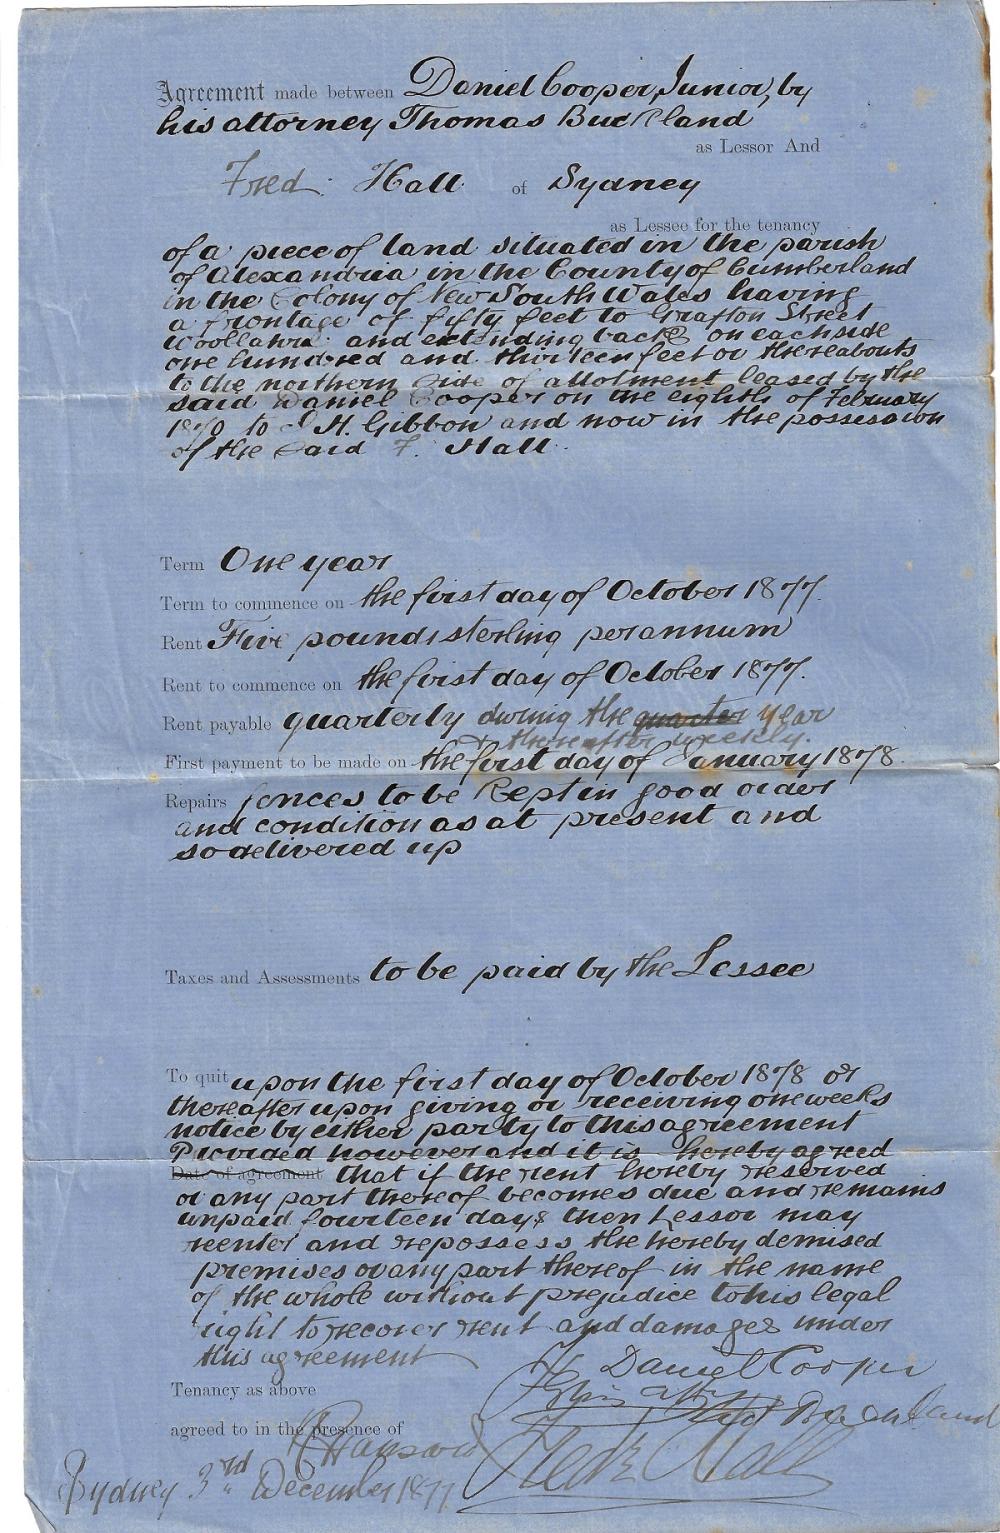 Agreement made between Daniel Cooper, Junior, by
his attorney Thomas Buckland
as Lessor And
Fred. Hall of Sydney
as Lessee for the tenancy
of a piece of land situated in the parish
of Alexandria in the County of Cumberland
in the Colony of New South Wales having
a frontage of fifty feet to Grafton Street
Woollahra and extending back on each side
one hundred and thirteen feet or thereabouts
to the northern side of allotment leased by the
said Daniel Cooper on the eighth of February
1870 to H. Gibbon and now in the possession
of the said F. Hall.
Term One year
Term to commence on the first day of October 1877.
Rent Five pounds sterling per annum
Rent to commence on the first day of October 1877.
Rent payable quarterly during the quarter year
& thereafter weekly.
First payment to be made on the first day of January 1878.
Repairs fences to be kept in good order
and condition as at present and
so delivered up
Taxes and Assessments to be paid by the Lessee
To quit upon the first day of October 1878 or
thereafter upon giving or receiving one weeks
notice by either party to this agreement
Provided however and it is hereby agreed
Date of agreement that if the rent hereby reserved
or any part thereof becomes due and remains
unpaid fourteen days then Lessor may
reenter and repossess the hereby demised
premises or any part thereof in the name
of the whole without prejudice to his legal
right to recover rent and damages under
this agreement
Daniel Cooper
Tenancy as above
by his atty Buckland
agreed to in the presence of
Fredk Hall
Sydney 3rd December 1877